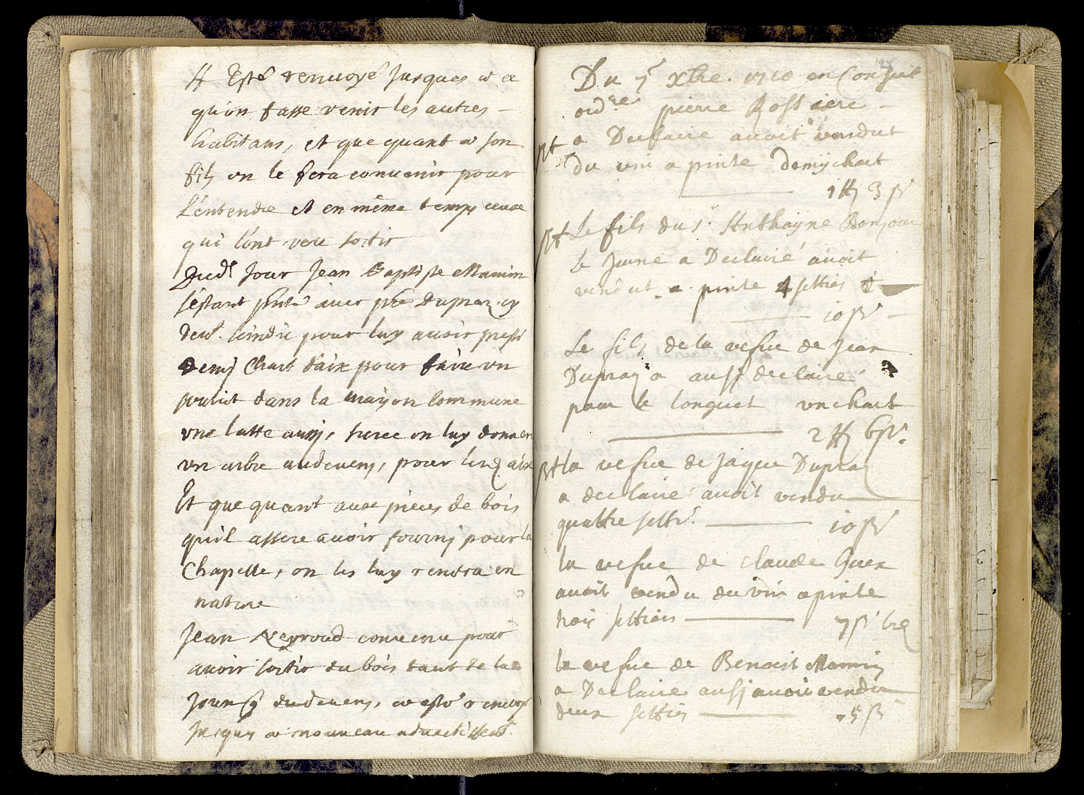 Il Est renvoyé Jusques a ce
qu'on fasse venir les autres
habitans, et que quant a son
fils on le fera convenir pour
L'entendre et en même temps ceux
qui l'ont veu sortir
Dud. Jour Jean Baptiste Mamin
s'estant avec Dupraz
pour luy avoir
demj Chart d'aix pour faire un
dans la mayson Commune
une latte aussj, on luy donnera
un arbre audevens, pour
Et que quant aux pieces de bois
qu'il assure avoir fournj pour la
Chapelle, on les luy rendra en
nature
Jean convenu pour
avoir sortir du bois tant de la
que dudevens, est renvoyé
Jusques a nouveau
Du 7e xbre. 1710 en Conseil
ordre pierre Rossiere
a Declaire avoit vendut
du vin a pinte demy chart
1 3
Le fils du Sr. Anthoyne Bonjour
le Jeune a Declairé avoit
vendut a pinte 4 settiers
10
Le fils de la vefue de Jean
Dupraz a aussj declaire
pour le longuet un chart
2 6
La vefue de Jaque Dupraz
a declaire avoit vendu
quattre
10
la vefue de claude Guex
avoit vendu du vin a pinte
trois settiers
7
la vefue de Benoist Mamin
a Declaire aussj avoir vendu
deux settiers
5